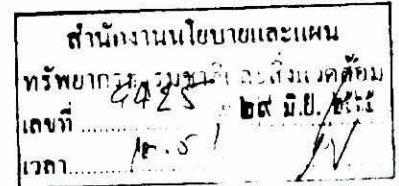 สำนักงานนโยบายและแผน
ทรัพยากรธรรมชาติและสิ่งแวดล้อม
เลขที่ 9425
๒๙ มิ.ย.
เวลา